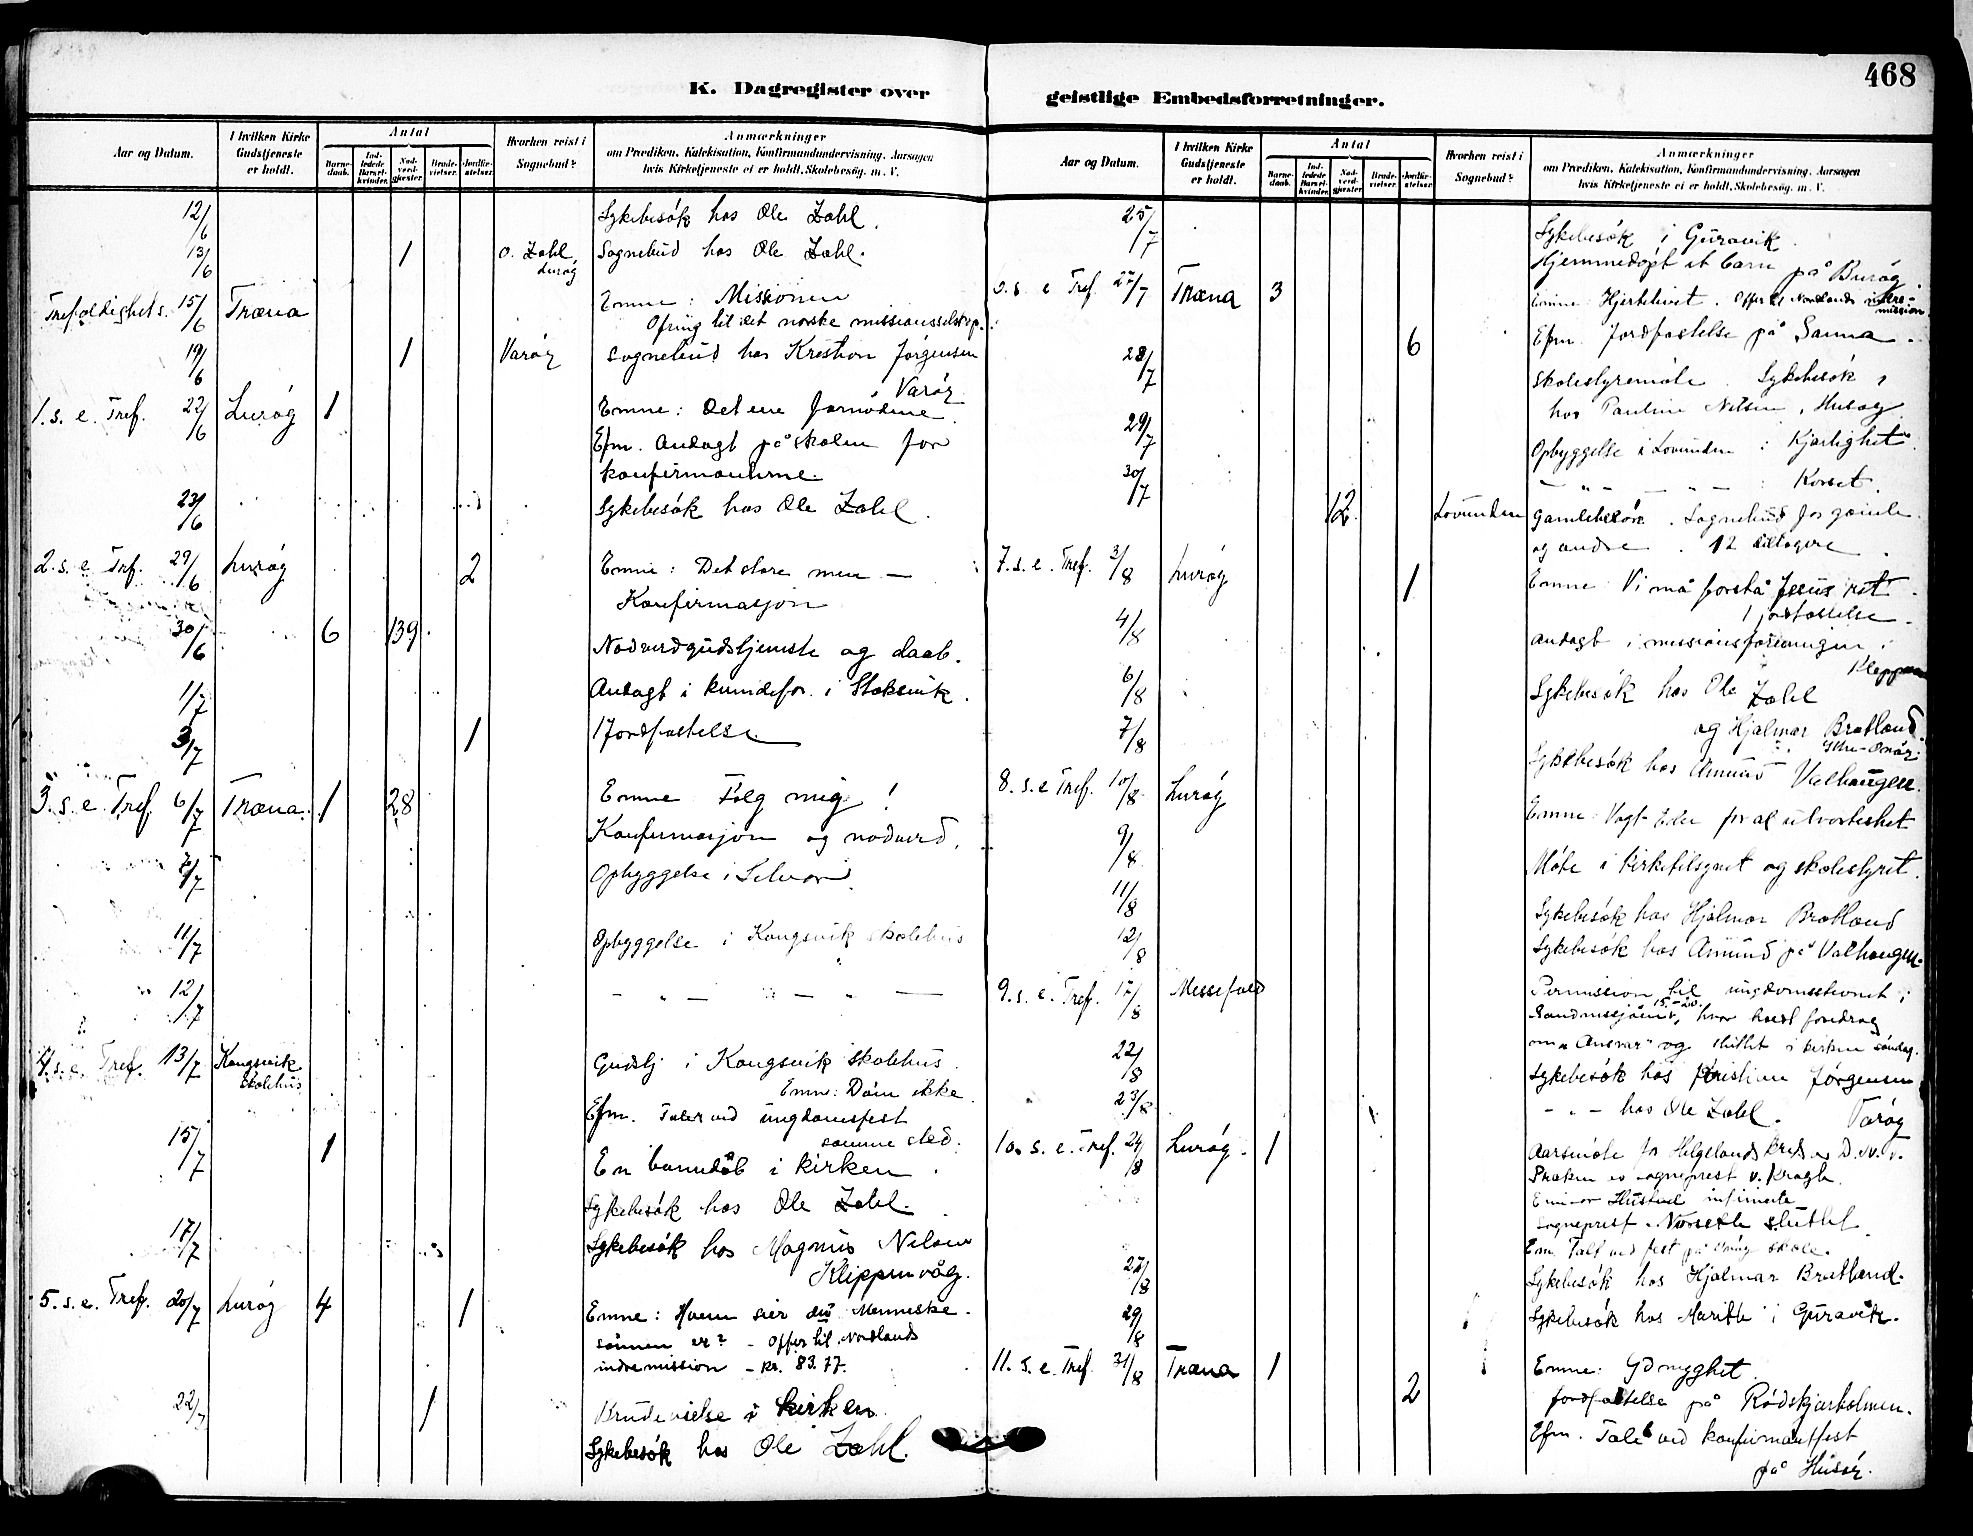 468
K. Dagregister over
Aar og Datum.
I hvilken Kirke Gudstjeneste er holdt.
Antal
Barnedaab.
Indledede Barselkvinder.
Nadverdgjester
Brudevielser.
Jordfæstelser.
Hvorhen reist i Sognebud?
Anmærkninger
om Prædiken, Katekisation, Konfirmandundervisning, Aarsagen
hvis Kirketjeneste ei er holdt, Skolebesög, m. V.
12/6 Sykebesök hos Ole Zahl.
13/6 1 O. Zahl Sognebud hos Ole Zahl.
Luröy
Trefoldighets. 15/6 Træna Emne: Missionen
Ofring til det norske missionsselskap.
19/6 1 Varöy Sognebud hos Kristian Jörgensen
Varöy
1. s. e. Tref. 22/6 Luröy 1 Emne: Det ene fornödne
Efm. Andagt på skolen for
konfirmanterne.
23/6 Sykebesök hos Ole Zahl.
2. s. e. Tref. 29/6 Luröy 2 Emne: Det store men —
Konfirmasjon
30/6 6 139 Nadverdgudstjeneste og daab.
1/7 Andagt i kvindefor. i Stoksvik.
3/7 1 1 Jordfæstelse
3. s. e. Tref. 6/7 Træna. 1 28 Emne Fölg mig!
Konfirmasjon og nadverd.
7/7 Opbyggelse i Selvær
11/7 Opbyggelse i Kongsvik skolehus
12/7 — " — " — " —
4. s. e. Tref. 13/7 Kongsvik Gudstj i Kongsvik skolehus.
skolehus Emne: Döm ikke
Efm. Taler ved ungdomsfest
samme sted.
15/7 1 En barnedåb i kirken.
Sykebesök hos Ole Zahl.
17/7 Sykebesök hos Magnus Nilsen
Klippenvåg.
5. s. e. Tref. 20/7 Luröy 4 1 Emne: Hvem sier du Menneske-
sönnen er? - Offer til Nordlands
indremission - kr. 83.77.
22/7 1 Brudevielse i kirken.
Sykebesök hos Ole Zahl.
geistlige Embedsforretninger.
Aar og Datum.
I hvilken Kirke Gudstjeneste er holdt.
Antal
Barnedaab.
Indledede Barselkvinder.
Nadverdgjester
Brudevielser.
Jordfæstelser.
Hvorhen reist i Sognebud?
Anmærkninger
om Prædiken, Katekisation, Konfirmandundervisning, Aarsagen
hvis Kirketjeneste ei er holdt, Skolebesög, m. V.
25/7 Sykebesök i Guravik.
Hjemmedöpt et barn på Buröy
s. e. Tref. 27/7 Træna 3 Emne: Hjertelivet. Offer til Nordlands indre-
mission.
6 Efm. Jordfæstelse på Sanna.
28/7 Skolestyremöte. Sykebesök
hos Pauline Nilsen,
29/7 Opbyggelse i Lovunden: Kjærlighet
30/7 — " — — " — : Korset.
12 Lovunden Sognebud for gamle
og andre. 12 deltagere
7. s. e. Tref. 3/8 Luröy 1 Emne Vi må forstå Jesus ret.
1 jordfæstelse.
4/8 Andagt i missionsforeningen i
6/8 Sykebesök hos Ole Zahl
og Hjalmar Bratland
7/8 Sykebesök hos Amund Valhaugen.
8. s. e. Tref. 10/8 Luröy Emne: Vogt Eder for al utvorteshet
9/8 Möte i kirketilsynet og skolestyret.
11/8 Sykebesök hos Hjalmar Bratland
12/8 Sykebesök hos Amund på Valhaugen.
9. s. e. Tref. 17/8 Messefald Permission til ungdomsstevnet i
Sandnessjöen 15.-20., hvor holdt foredrag
om „Ansvar" og sluttet i kirken söndag.
22/8 Sykebesök hos Kristian Jörgensen
Varöy
23/8 — " — hos Ole Zahl.
10. s. e. Tref. 24/8 Luröy. 1 Aarsmöte for Helgelands kreds av D.N.
Præken av sogneprest v. Krogh.
sogneprest Norseth sluttet.
Em. Tale ved fest på skole.
27/8 Sykebesök hos Hjalmar Bratland.
29/8 Sykebesök hos i Guravik.
11. s. e. Tref. 31/8 Træna 1 Emne: Ydmyghet.
2 Jordfæstelse på Rödskjærholmen.
Efm. Tale ved konfirmantfest
på Husöy.